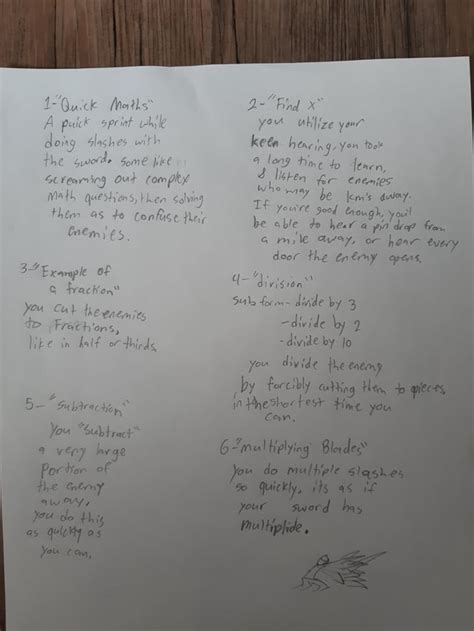 1-"Quick Maths"
A quick sprint while
doing slashes with
the sword, some like
screaming out complex
Math questions, then solving
them as to confuse their
enemies.
2-"Find X"
you utilize your
keen hearing, you took
a long time to learn,
& listen for enemies
who may be km's away.
If you're good enough, you'll
be able to hear a pin drop from
a mile away, or hear every
door the enemy opens.
3-"Example of
a fraction"
you cut the enemies
to Fractions,
like in half or thirds.
4-"division"
sub form- divide by 3
-divide by 2
-divide by 10
you divide the enemy
by forcibly cutting them to pieces
in the shortest time you
can.
5-"Subtraction"
You "subtract"
a very large
Portion of
the enemy
away,
you do this
as quickly as
you can.
6-"multiplying Blades"
you do multiple slashes
so quickly, its as if
your sword has
multiplide.